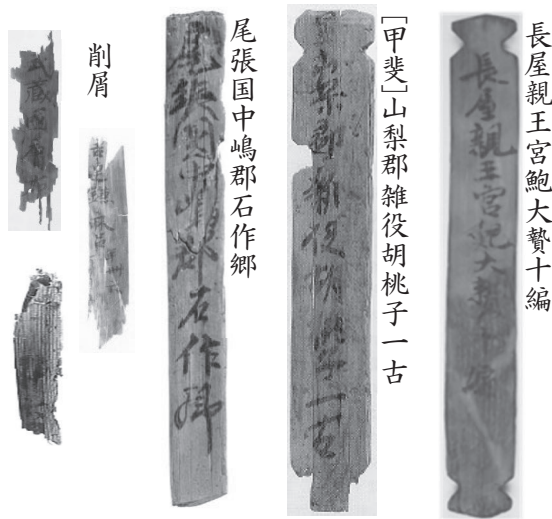 長屋親王宮鮑大贄十編
長屋親王宮鮑大贄十編
[甲斐]山梨郡雑役胡桃子一古
山梨郡雑役胡桃子一古
尾張国中嶋郡石作郷
尾張国中嶋郡石作郷
削屑
武蔵国